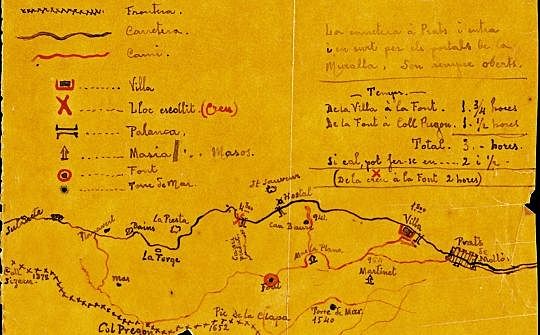 Frontera.
Carretera.
Cami.
Villa
Lloc escollit. (Creu)
Palanca.
Masia Masos.
Font
Torre de Mar.
La carretera à Prats i entra
i en surt per els portals de la
Muralla, Son sempre oberts.
Temps.
De la Villa à la Font. 1. 3/4 hores
De la Font à Coll Pregon. 1. 1/2 hores
Total. 3. - hores.
Si cal, pot fer-se en 2 i 1/2.
(De la creu à la Font 2 hores)
St Sauveur
Hostal
can Baure
941
Villa
Prats
de
Molló
Bains
La Presta
La Forge
mas
Mas la Plana
Martinet
Font
Torre de Mar
1540
Pic de la Clapa
1652
Col Pregon
Coll